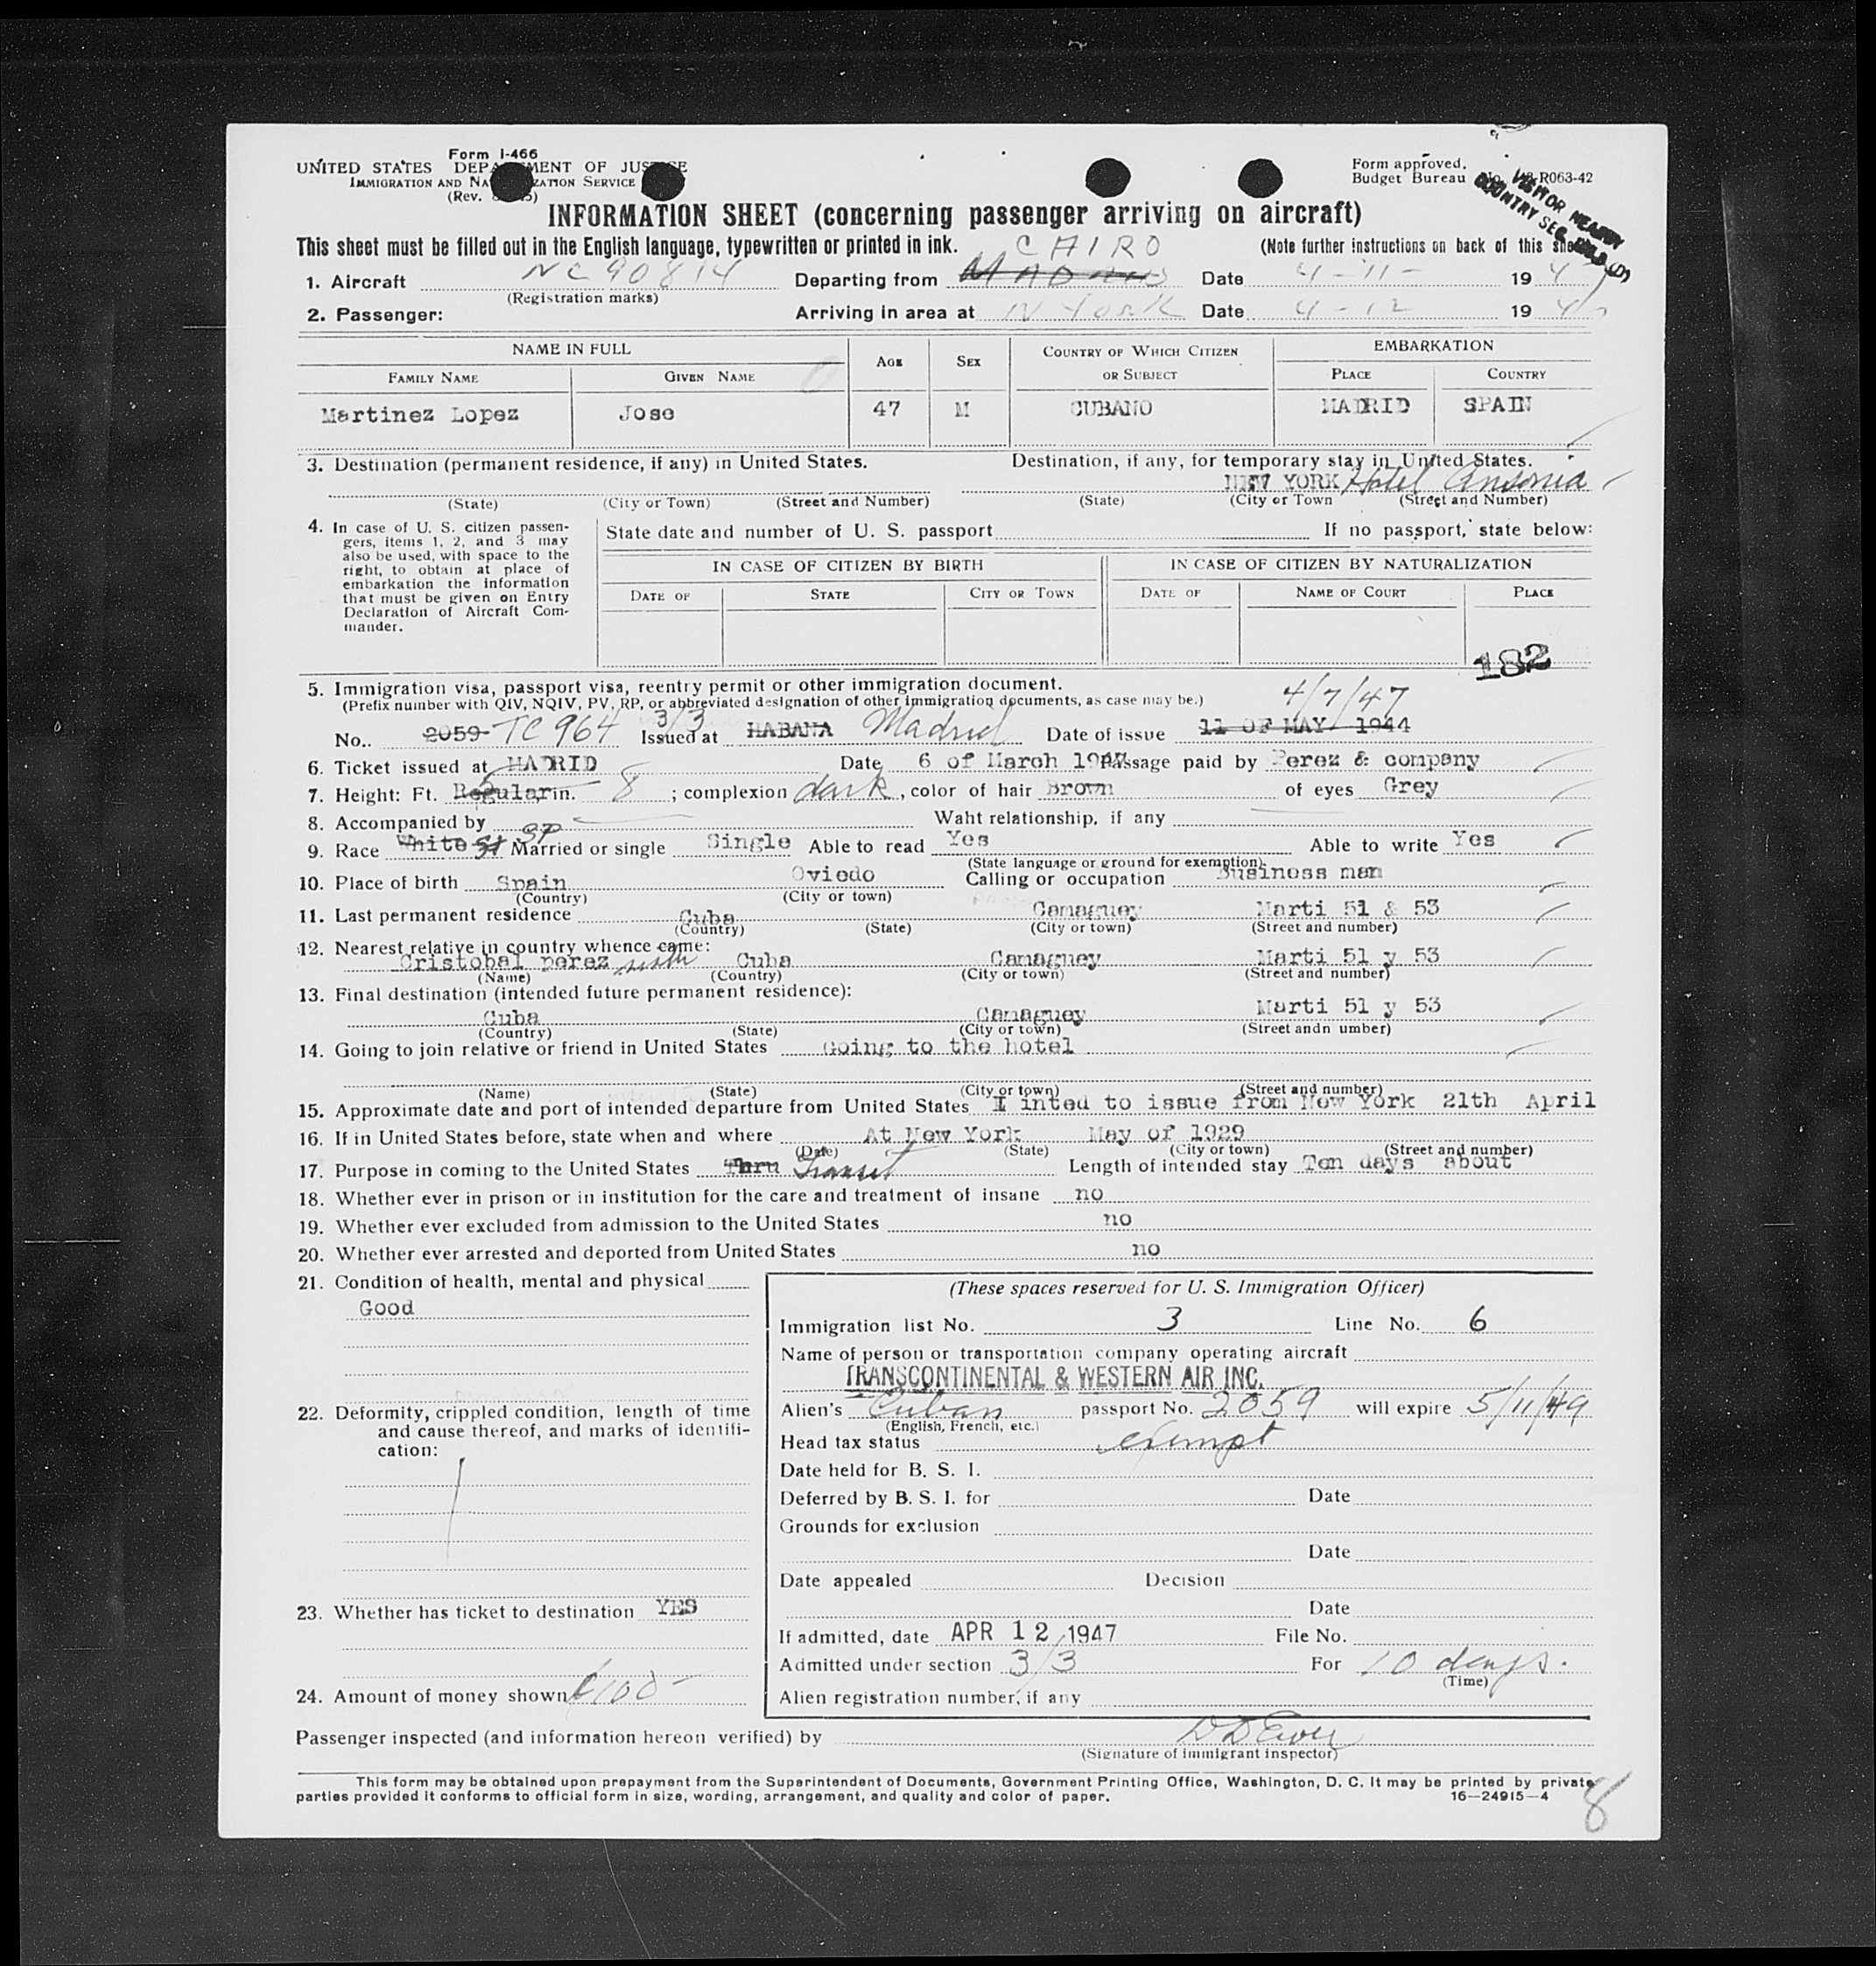 Form I-466
UNITED STATES DEPARTMENT OF JUSTICE
IMMIGRATION AND NATURALIZATION SERVICE
(Rev.
Form approved.
Budget Bureau No. R063-42
VISITOR
COUNTRY SEC.
INFORMATION SHEET (concerning passenger arriving on aircraft)
This sheet must be filled out in the English language, typewritten or printed in ink. (Note further instructions on back of this sheet)
CAIRO
1. Aircraft NC 90814 Departing from MADRID Date 4-11- 1947
(Registration marks)
2. Passenger: Arriving in area at N York Date 4-12 1947
NAME IN FULL AGE SEX COUNTRY OF WHICH CITIZEN OR SUBJECT EMBARKATION
FAMILY NAME GIVEN NAME PLACE COUNTRY
Martinez Lopez Jose 47 M CUBANO MADRID SPAIN
3. Destination (permanent residence, if any) in United States. Destination, if any, for temporary stay in United States.
NEW YORK Hotel Ansonia
(State) (City or Town) (Street and Number) (State) (City or Town (Street and Number)
4. In case of U. S. citizen passen-
gers, items 1, 2, and 3 may
also be used, with space to the
right, to obtain at place of
embarkation the information
that must be given on Entry
Declaration of Aircraft Com-
mander.
State date and number of U. S. passport If no passport, state below:
IN CASE OF CITIZEN BY BIRTH IN CASE OF CITIZEN BY NATURALIZATION
DATE OF STATE CITY OR TOWN DATE OF NAME OF COURT PLACE
182
5. Immigration visa, passport visa, reentry permit or other immigration document.
(Prefix number with QIV, NQIV, PV, RP, or abbreviated designation of other immigration documents, as case may be.)
4/7/47
No.. 2059 TC 964 3/3 Issued at HABANA Madrid Date of issue 11 OF MAY 1944
6. Ticket issued at MADRID Date 6 of March 1947 Passage paid by Perez & company
7. Height: Ft. Regular 5 in. 8 ; complexion dark , color of hair Brown of eyes Grey
8. Accompanied by Waht relationship, if any
9. Race White SP Married or single Single Able to read Yes Able to write Yes
(State language or ground for exemption).
10. Place of birth Spain Oviedo Calling or occupation Business man
(Country) (City or town)
11. Last permanent residence Cuba Camaguey Marti 51 & 53
(Country) (State) (City or town) (Street and number)
12. Nearest relative in country whence came:
Cristobal perez Cuba Camaguey Marti 51 y 53
(Name) (Country) (City or town) (Street and number)
13. Final destination (intended future permanent residence):
Cuba Camaguey Marti 51 y 53
(Country) (State) (City or town) (Street andn umber)
14. Going to join relative or friend in United States Going to the hotel
(Name) (State) (City or town) (Street and number)
15. Approximate date and port of intended departure from United States I inted to issue from New York 21th April
16. If in United States before, state when and where At New York May of 1929
(Date) (State) (City or town) (Street and number)
17. Purpose in coming to the United States Thru Transit Length of intended stay Ten days about
18. Whether ever in prison or in institution for the care and treatment of insane no
19. Whether ever excluded from admission to the United States no
20. Whether ever arrested and deported from United States no
21. Condition of health, mental and physical
Good
22. Deformity, crippled condition, length of time
and cause thereof, and marks of identifi-
cation:
23. Whether has ticket to destination YES
24. Amount of money shown $100-
(These spaces reserved for U. S. Immigration Officer)
Immigration list No. 3 Line No. 6
Name of person or transportation company operating aircraft
TRANSCONTINENTAL & WESTERN AIR INC.
Alien's Cuban passport No. 2059 will expire 5/11/49
(English, French, etc.)
Head tax status exempt
Date held for B. S. I.
Deferred by B. S. I. for Date
Grounds for exclusion
Date
Date appealed Decision
Date
If admitted, date APR 12 1947 File No.
Admitted under section 3/3 For 10 days.
(Time)
Alien registration number, if any
Passenger inspected (and information hereon verified) by
(Signature of immigrant inspector)
This form may be obtained upon prepayment from the Superintendent of Documents, Government Printing Office, Washington, D. C. It may be printed by private
parties provided it conforms to official form in size, wording, arrangement, and quality and color of paper. 16—24915—4
8